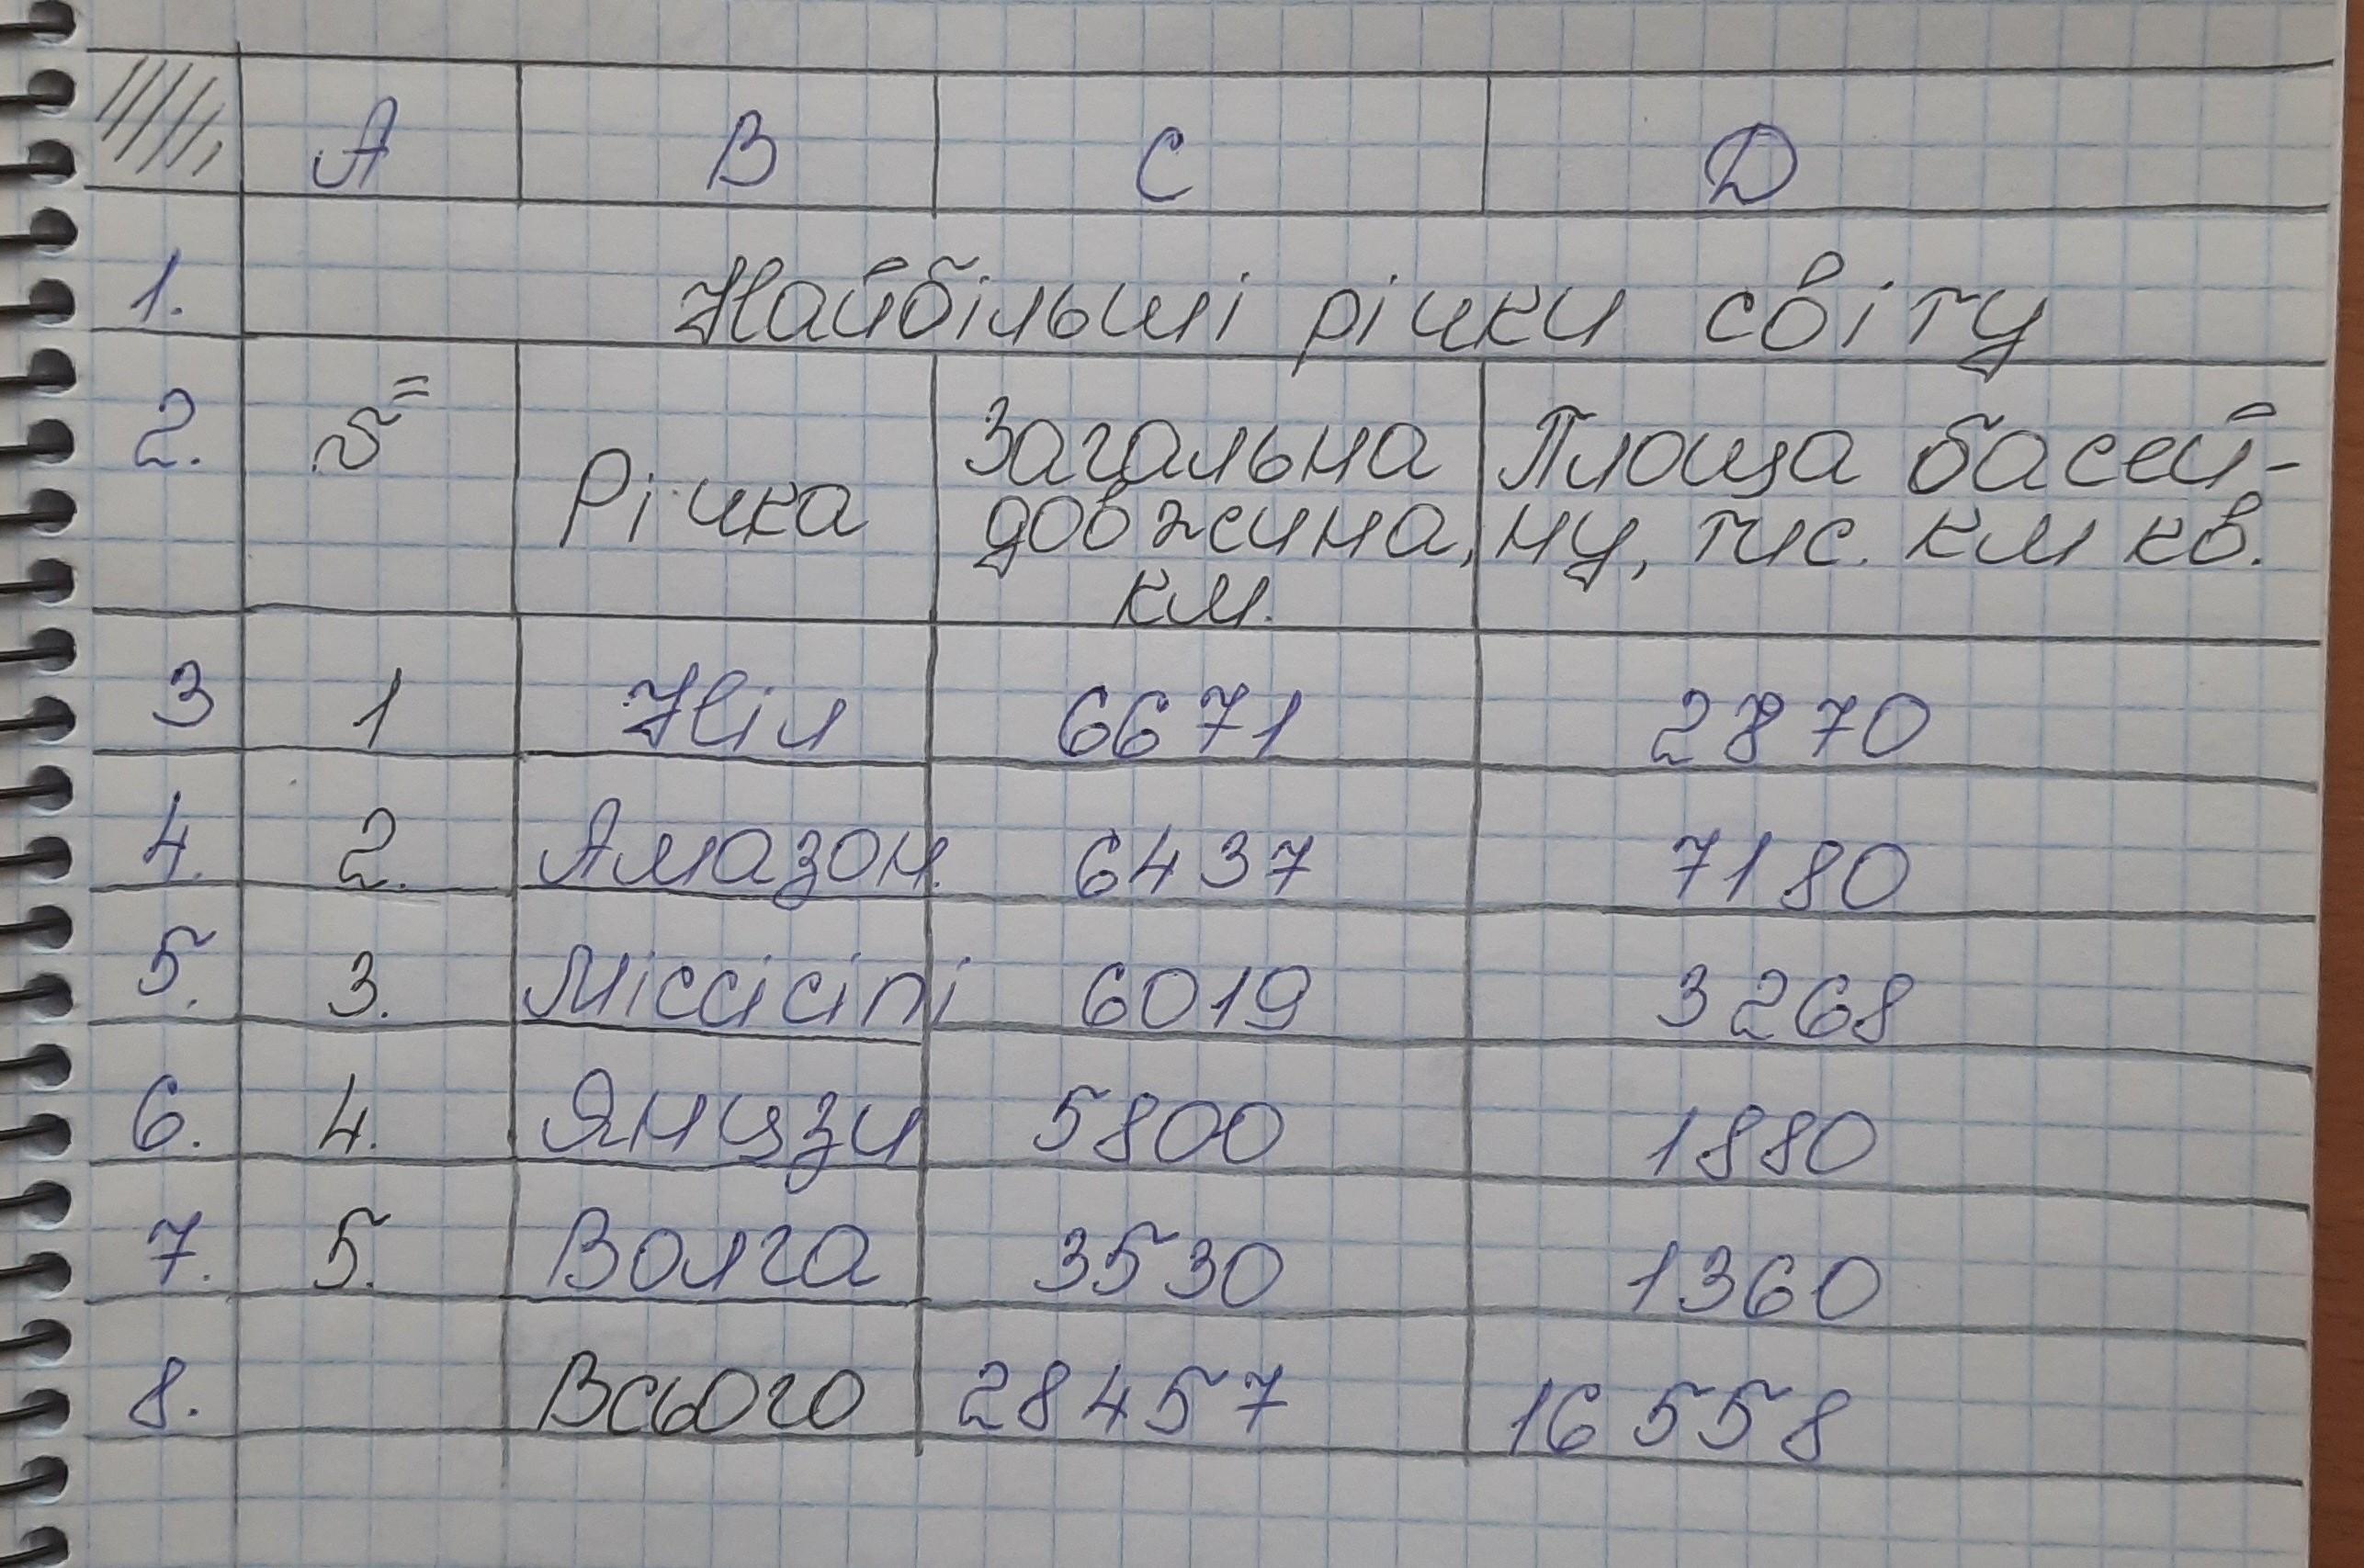 A B C D
1. Найбільші річки світу
2. № Річка Загальна довжина, км. Площа басей-ну, тис. км кв.
3 1 Ніл 6671 2870
4. 2. Амазон. 6437 7180
5. 3. Міссісіпі 6019 3268
6. 4. Янцзи 5800 1880
7. 5. Волга 3530 1360
8. Всього 28457 16558